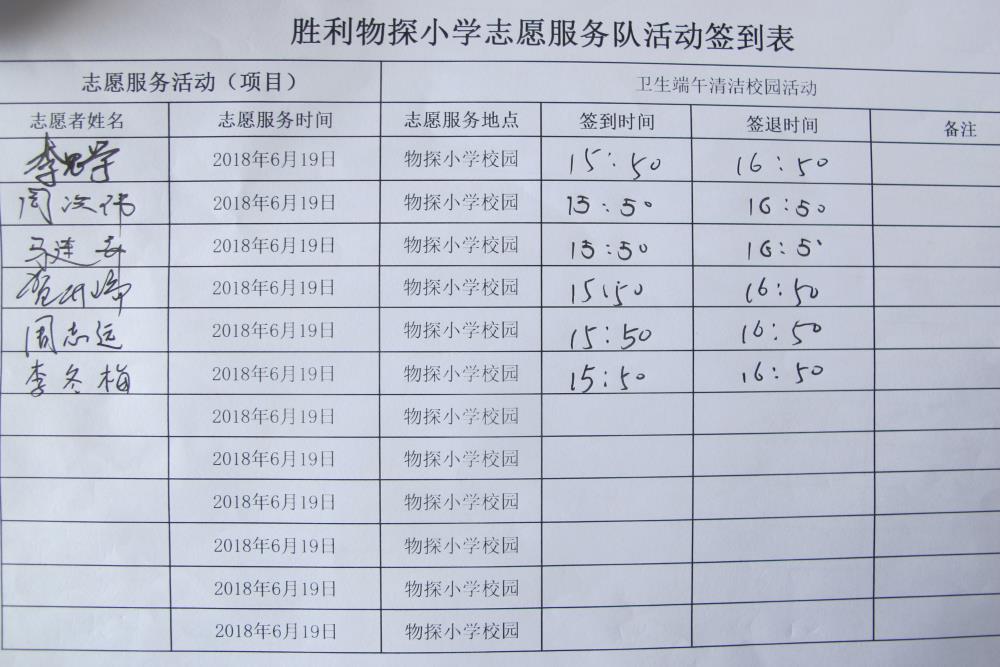 胜利物探小学志愿服务队活动签到表
志愿服务活动（项目） 卫生端午清洁校园活动
志愿者姓名 志愿服务时间 志愿服务地点 签到时间 签退时间 备注
李 学 2018年6月19日 物探小学校园 15:50 16:50
周 2018年6月19日 物探小学校园 15:50 16:50
马连 2018年6月19日 物探小学校园 15:50 16:5
2018年6月19日 物探小学校园 15:50 16:50
周志远 2018年6月19日 物探小学校园 15:50 16:50
李冬梅 2018年6月19日 物探小学校园 15:50 16:50
2018年6月19日 物探小学校园
2018年6月19日 物探小学校园
2018年6月19日 物探小学校园
2018年6月19日 物探小学校园
2018年6月19日 物探小学校园
2018年6月19日 物探小学校园